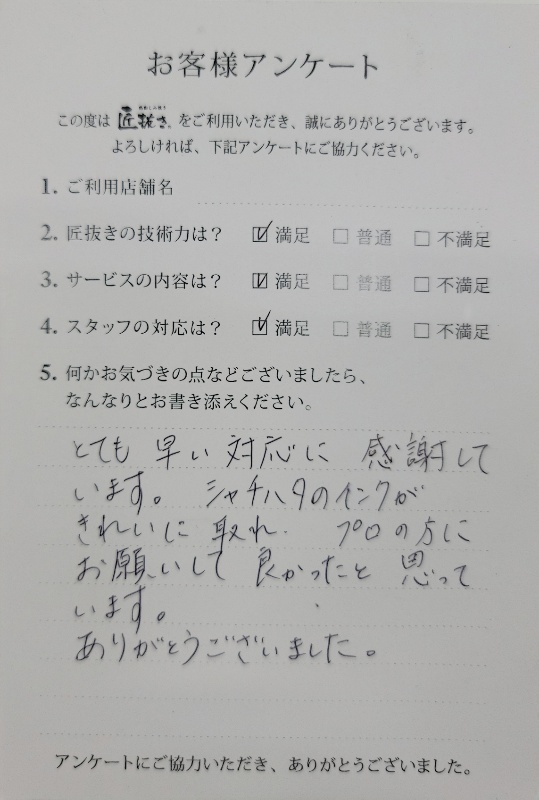 お客様アンケート
この度は 匠抜き をご利用いただき、誠にありがとうございます。
よろしければ、下記アンケートにご協力ください。
1. ご利用店舗名
2. 匠抜きの技術力は? ☑ 満足 □ 普通 □ 不満足
3. サービスの内容は? ☑ 満足 □ 普通 □ 不満足
4. スタッフの対応は? ☑ 満足 □ 普通 □ 不満足
5. 何かお気づきの点などございましたら、
なんなりとお書き添えください。
とても 早い 対応に 感謝して
います。 シャチハタのインクが
きれいに 取れ プロの方に
お願いして 良かったと 思って
います。
ありがとうございました。
アンケートにご協力いただき、ありがとうございました。